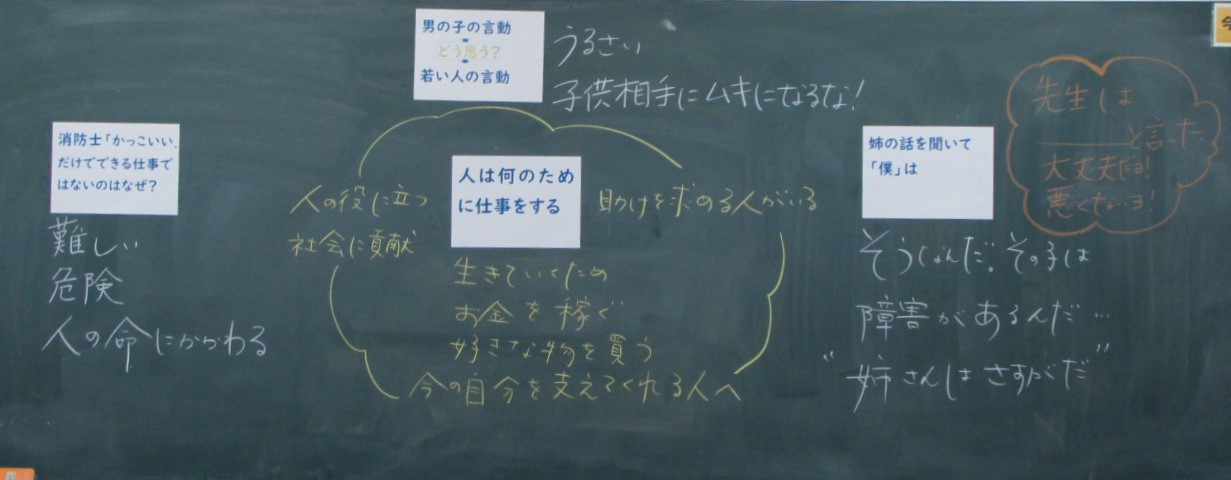 男の子の言動
どう思う?
若い人の言動
うるさい
子供相手にムキになるな!
消防士「かっこいい」
だけでできる仕事で
はないのはなぜ?
難しい
危険
人の命にかかわる
人は何のため
に仕事をする
人の役に立つ
社会に貢献
助けを求める人がいる
生きていくため
お金を稼ぐ
好きな物を買う
今の自分を支えてくれる人へ
姉の話を聞いて
「僕」は
そうなんだ。その子は
障害があるんだ…
“姉さんはさすがだ”
先生は
______と言った
大丈夫だヨ!
悪くないヨ!
今